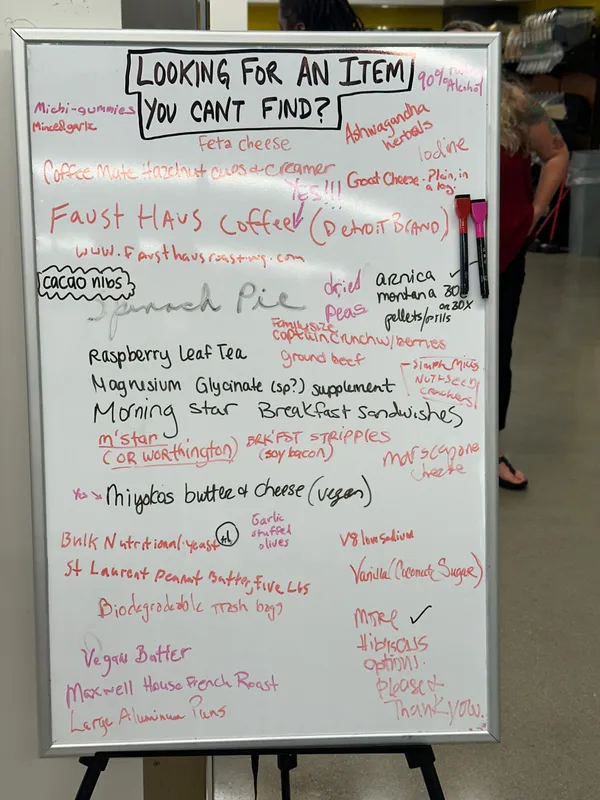 LOOKING FOR AN ITEM
YOU CAN'T FIND?
90%
Alcohol
Michi-gummies
Minced garlic
Feta cheese
Ashwagandha
herbals
Iodine
Coffee Mate Hazelnut cups of Creamer
Yes!!!
Goat Cheese - Plain, in
a log.
FAUST HAUS Coffee (Detroit Brand)
www.fausthausroasting.com
cacao nibs
Spinach Pie
dried
peas
arnica ✓
montana 30c
or 30X
pellets/pills
Family size
captain crunch w/berries
ground beef
Raspberry Leaf Tea
Magnusium Glycinate (sp?) supplement
Simple Mills
NUT+SEED
Crackers
Morning Star Breakfast Sandwishes
m'star
(OR WORTHINGTON)
BRK'FST STRIPPLES
(soy bacon)
marscapone
cheese
Yes → Miyokos butter & cheese (vegan)
Garlic
stuffed
olives
Bulk Nutritional yeast
V8 low sodium
St Laurent Peanut Butter five Lbs
Vanilla (Coconut Sugar)
Biodegradeable trash bags
More ✓
Hibiscus
options.
please &
Thank you.
Vegan Butter
Maxwell House French Roast
Large Aluminum Pans